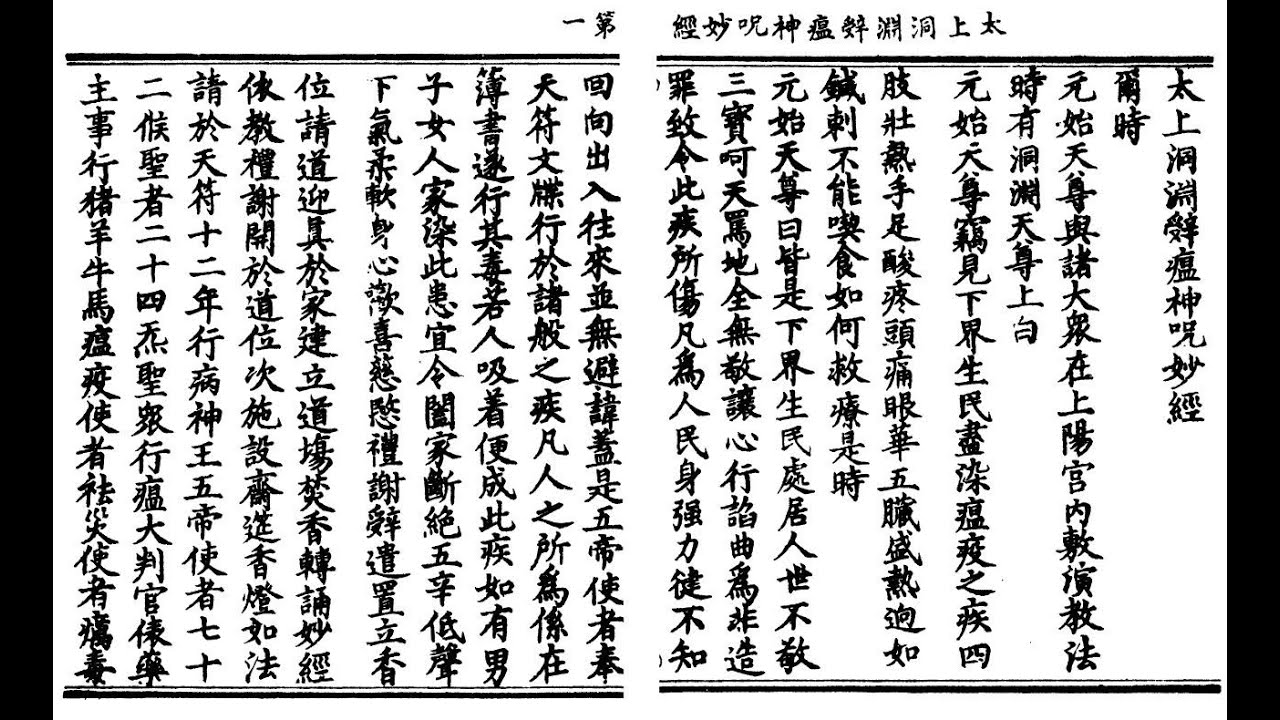 太上洞淵辤瘟神呪妙經
太上洞淵辤瘟神呪妙經
爾時
元始天尊與諸大眾在上陽宮內敷演教法
時有洞淵天尊上白
元始天尊竊見下界生民盡染瘟疫之疾四
肢壯熱手足酸疼頭痛眼華五臟盛熱逈如
鍼刺不能喫食如何救療是時
元始天尊曰皆是下界生民處居人世不敬
三寶呵天罵地全無敬讓心行諂曲為非造
罪致令此疾所傷凡為人民身强力徤不知
第一
回向出入往來並無避諱蓋是五帝使者奉
天符文牒行於諸般之疾凡人之所為係在
簿書遂行其毒若人吸着便成此疾如有男
子女人家染此患宜令闔家斷絕五辛低聲
下氣柔軟身心歡喜慈愍禮謝辤遣置立香
位請道迎真於家建立道場焚香轉誦妙經
依教禮謝開於道位次施設齋筵香燈如法
請於天符十二年行病神王五帝使者七十
二候聖者二十四炁聖眾行瘟大判官俵藥
主事行猪羊牛馬瘟疫使者祛災使者癘毒